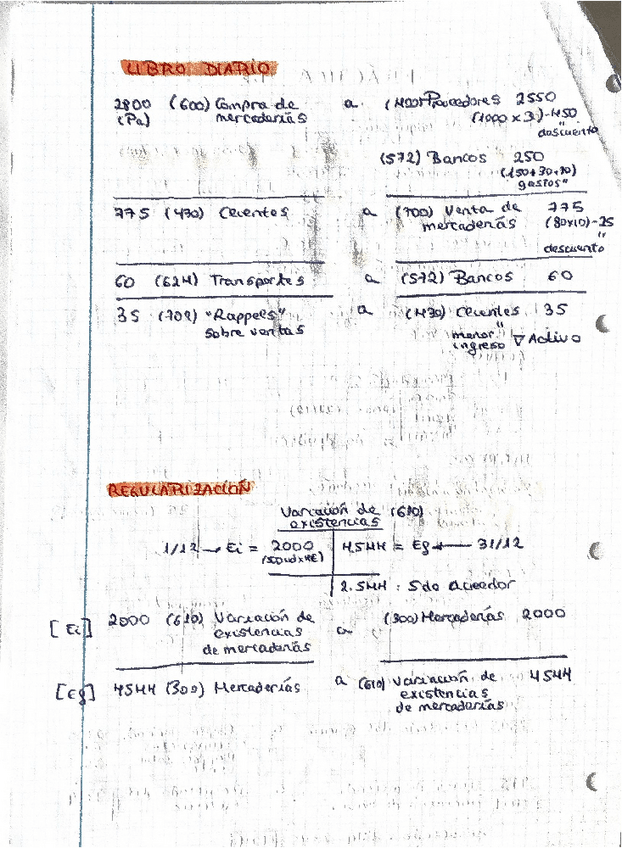 LIBRO DIARIO
2800 (600) Compra de a (400) Proveedores 2550
(Pa) mercaderías (1000 x 3) - 450
" descuento
(572) Bancos 250
(150+30+70)
gastos"
775 (430) Clientes a (700) Venta de 775
mercaderías (80x10) - 25
"
descuento
60 (624) Transportes a (572) Bancos 60
35 (709) "Rappels" a (430) Clientes 35
sobre ventas menor "
ingreso ∇ Activo
REGULARIZACIÓN
Variación de (610)
existencias
1/12 → Ei = 2000 4.544 = Eg ← 31/12
(500udx4€)
2.544 : Sdo Acreedor
[Ei] 2000 (610) Variación de a (300) Mercaderías 2000
existencias
de mercaderías
[Eg] 4544 (300) Mercaderías a (610) Variación de 4544
existencias
de mercaderías